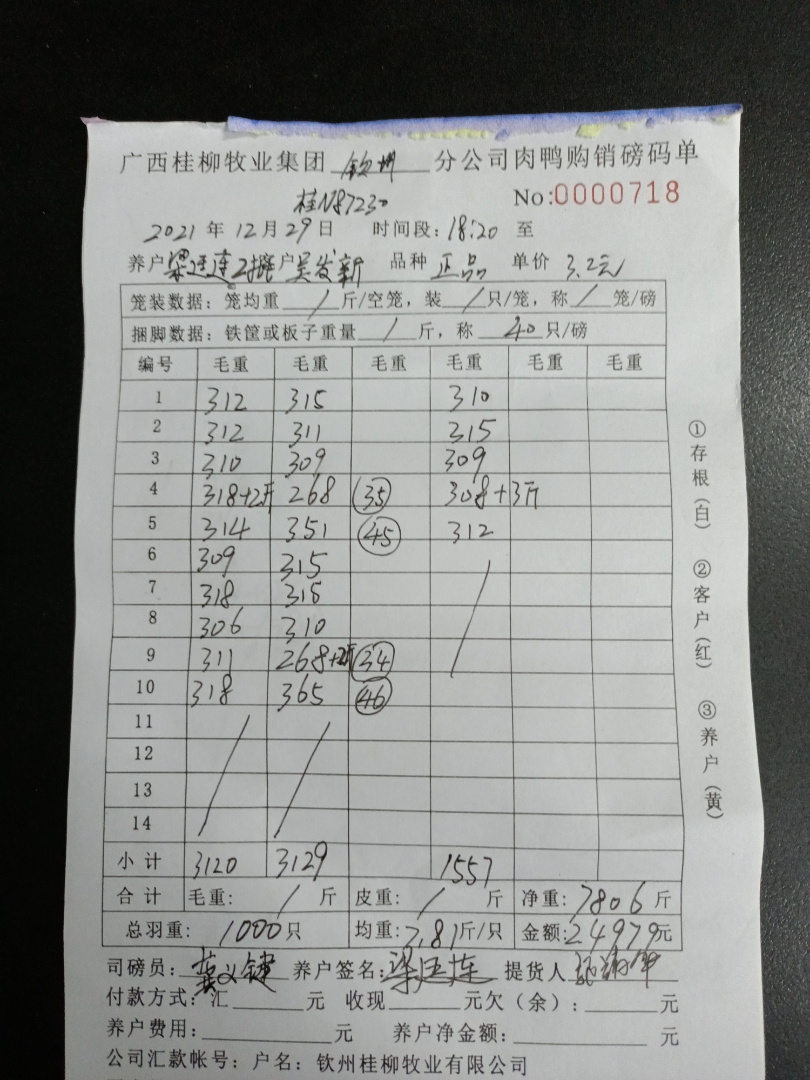 广西桂柳牧业集团 钦州 分公司肉鸭购销磅码单
桂N87230 No:0000718
2021年12月29日 时间段:18:20 至
养户 梁廷连2 户 吴发新 品种 正品 单价 3.2元
笼装数据:笼均重 / 斤/空笼,装 / 只/笼,称 / 笼/磅
捆脚数据:铁筐或板子重量 / 斤,称 40 只/磅
编号 毛重 毛重 毛重 毛重 毛重 毛重
1 312 315 310
2 312 311 315
3 310 309 309
4 318+2斤 268 35 308+3斤
5 314 351 45 312
6 309 315
7 318 315
8 306 310
9 311 268+2斤 34
10 318 365 46
11
12
13
14
小计 3120 3129 1557
合计 毛重: / 斤 皮重: / 斤 净重:7806斤
总羽重: 1000只 均重:7.81斤/只 金额:24979元
司磅员: 养户签名:梁廷连 提货人
付款方式:汇 元 收现 元欠(余): 元
养户费用: 元 养户净金额: 元
公司汇款帐号:户名:钦州桂柳牧业有限公司
①存根(白) ②客户(红) ③养户(黄)